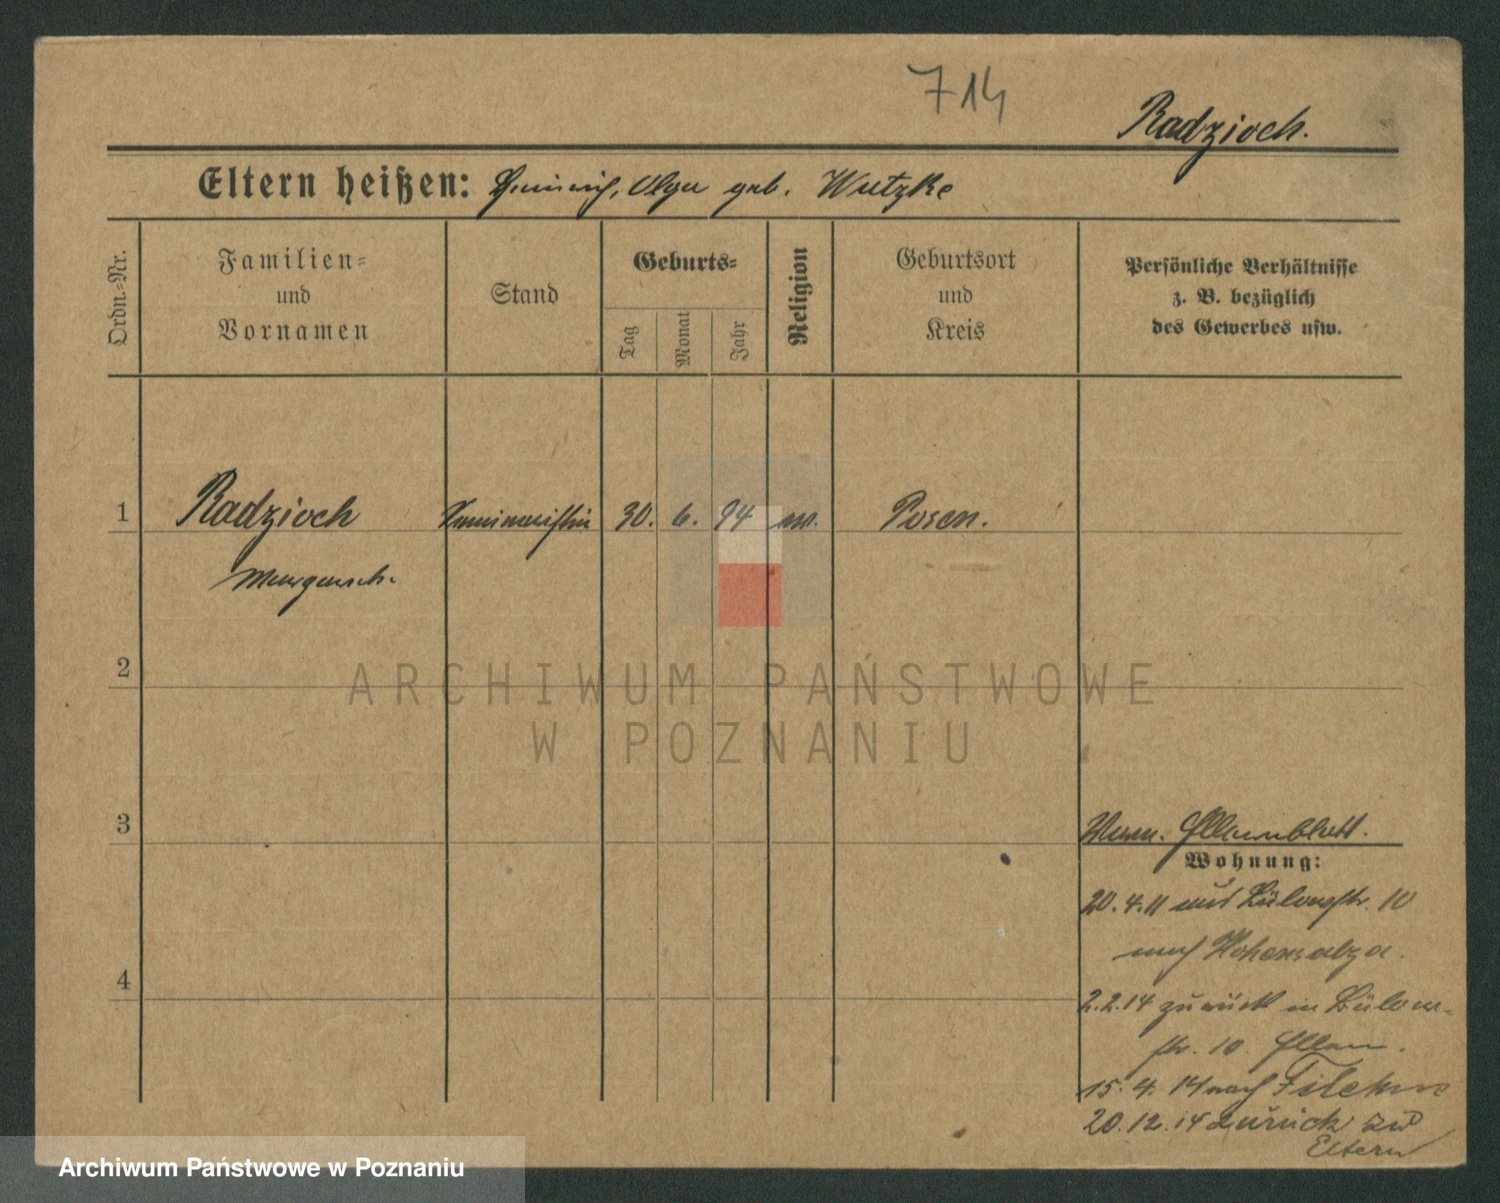 714
Radzioch.
Eltern heißen: Heinrich, Olga geb. Wutzke
Ordn.-Nr.
Familien-
und
Vornamen
Stand
Geburts-
Tag
Monat
Jahr
Religion
Geburtsort
und
Kreis
Persönliche Verhältnisse
z. B. bezüglich
des Gewerbes usw.
1
Radzioch
Seminaristin
30. 6. 94
Posen.
Margareth.
2
ARCHIWUM PAŃSTWOWE
W POZNANIU
3
Elternblatt.
Wohnung:
20.4.11 aus Bülowstr. 10
nach Hohensalza.
4
2.2.14 zurück in Bülow-
str. 10. Eltern.
15. 4. 14 nach Filehne
20.12.14 zurück zu
Eltern
Archiwum Państwowe w Poznaniu